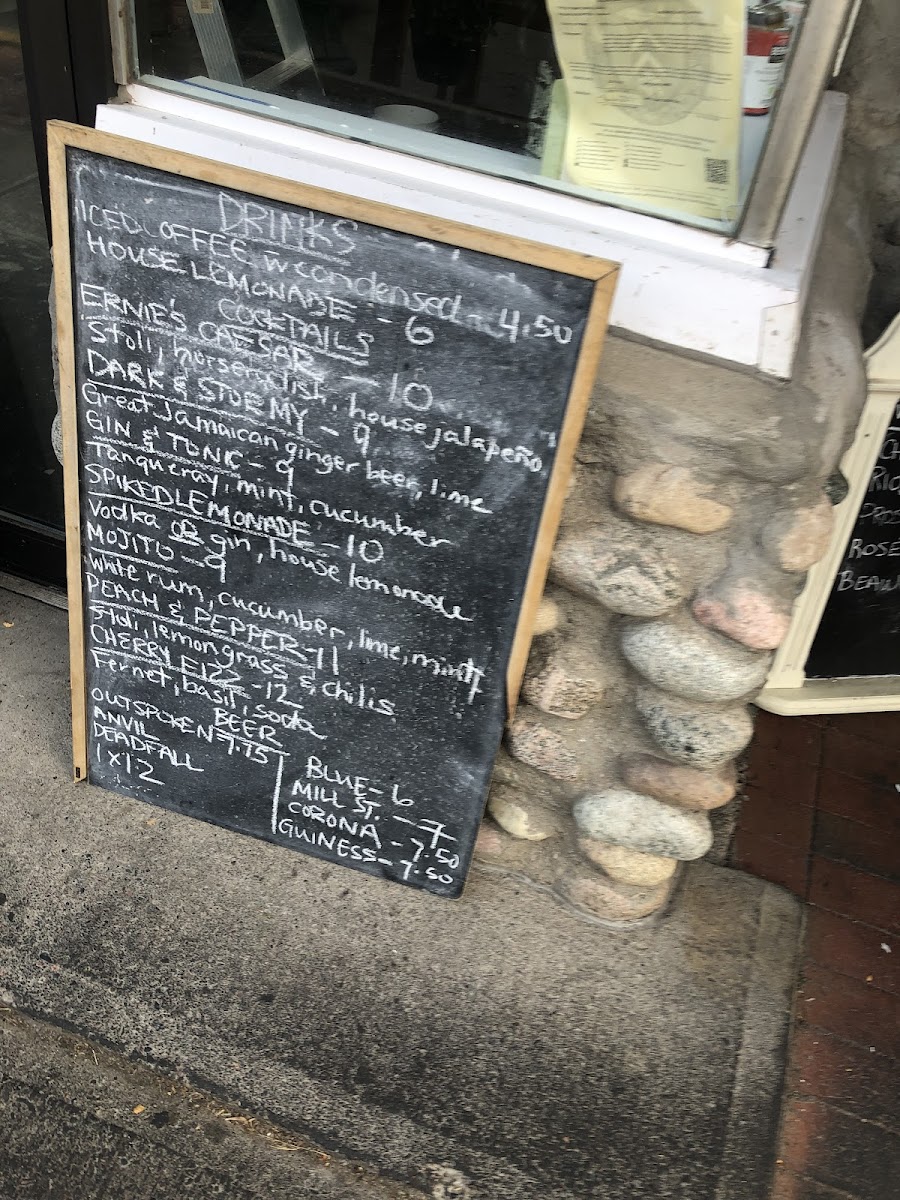 DRINKS
ICED COFFEE w condensed - 4.50
HOUSE LEMONADE - 6
COCKTAILS
ERNIE'S CAESAR - 10
Stoli, horseradish, house jalapeño
DARK & STORMY - 9
Great Jamaican ginger beer, lime
GIN & TONIC - 9
Tanqueray, mint, cucumber
SPIKED LEMONADE - 10
Vodka OR gin, house lemonade
MOJITO - 9
white rum, cucumber, lime, mint
PEACH & PEPPER - 11
lemongrass & chilis
CHERRY FIZZ - 12
Fernet, basil, soda
BEER
OUTSPOKEN 7.75
ANVIL
DEADFALL
1X12
BLUE - 6
MILL ST. - 7
CORONA - 7.50
GUINESS - 7.50
ROSE